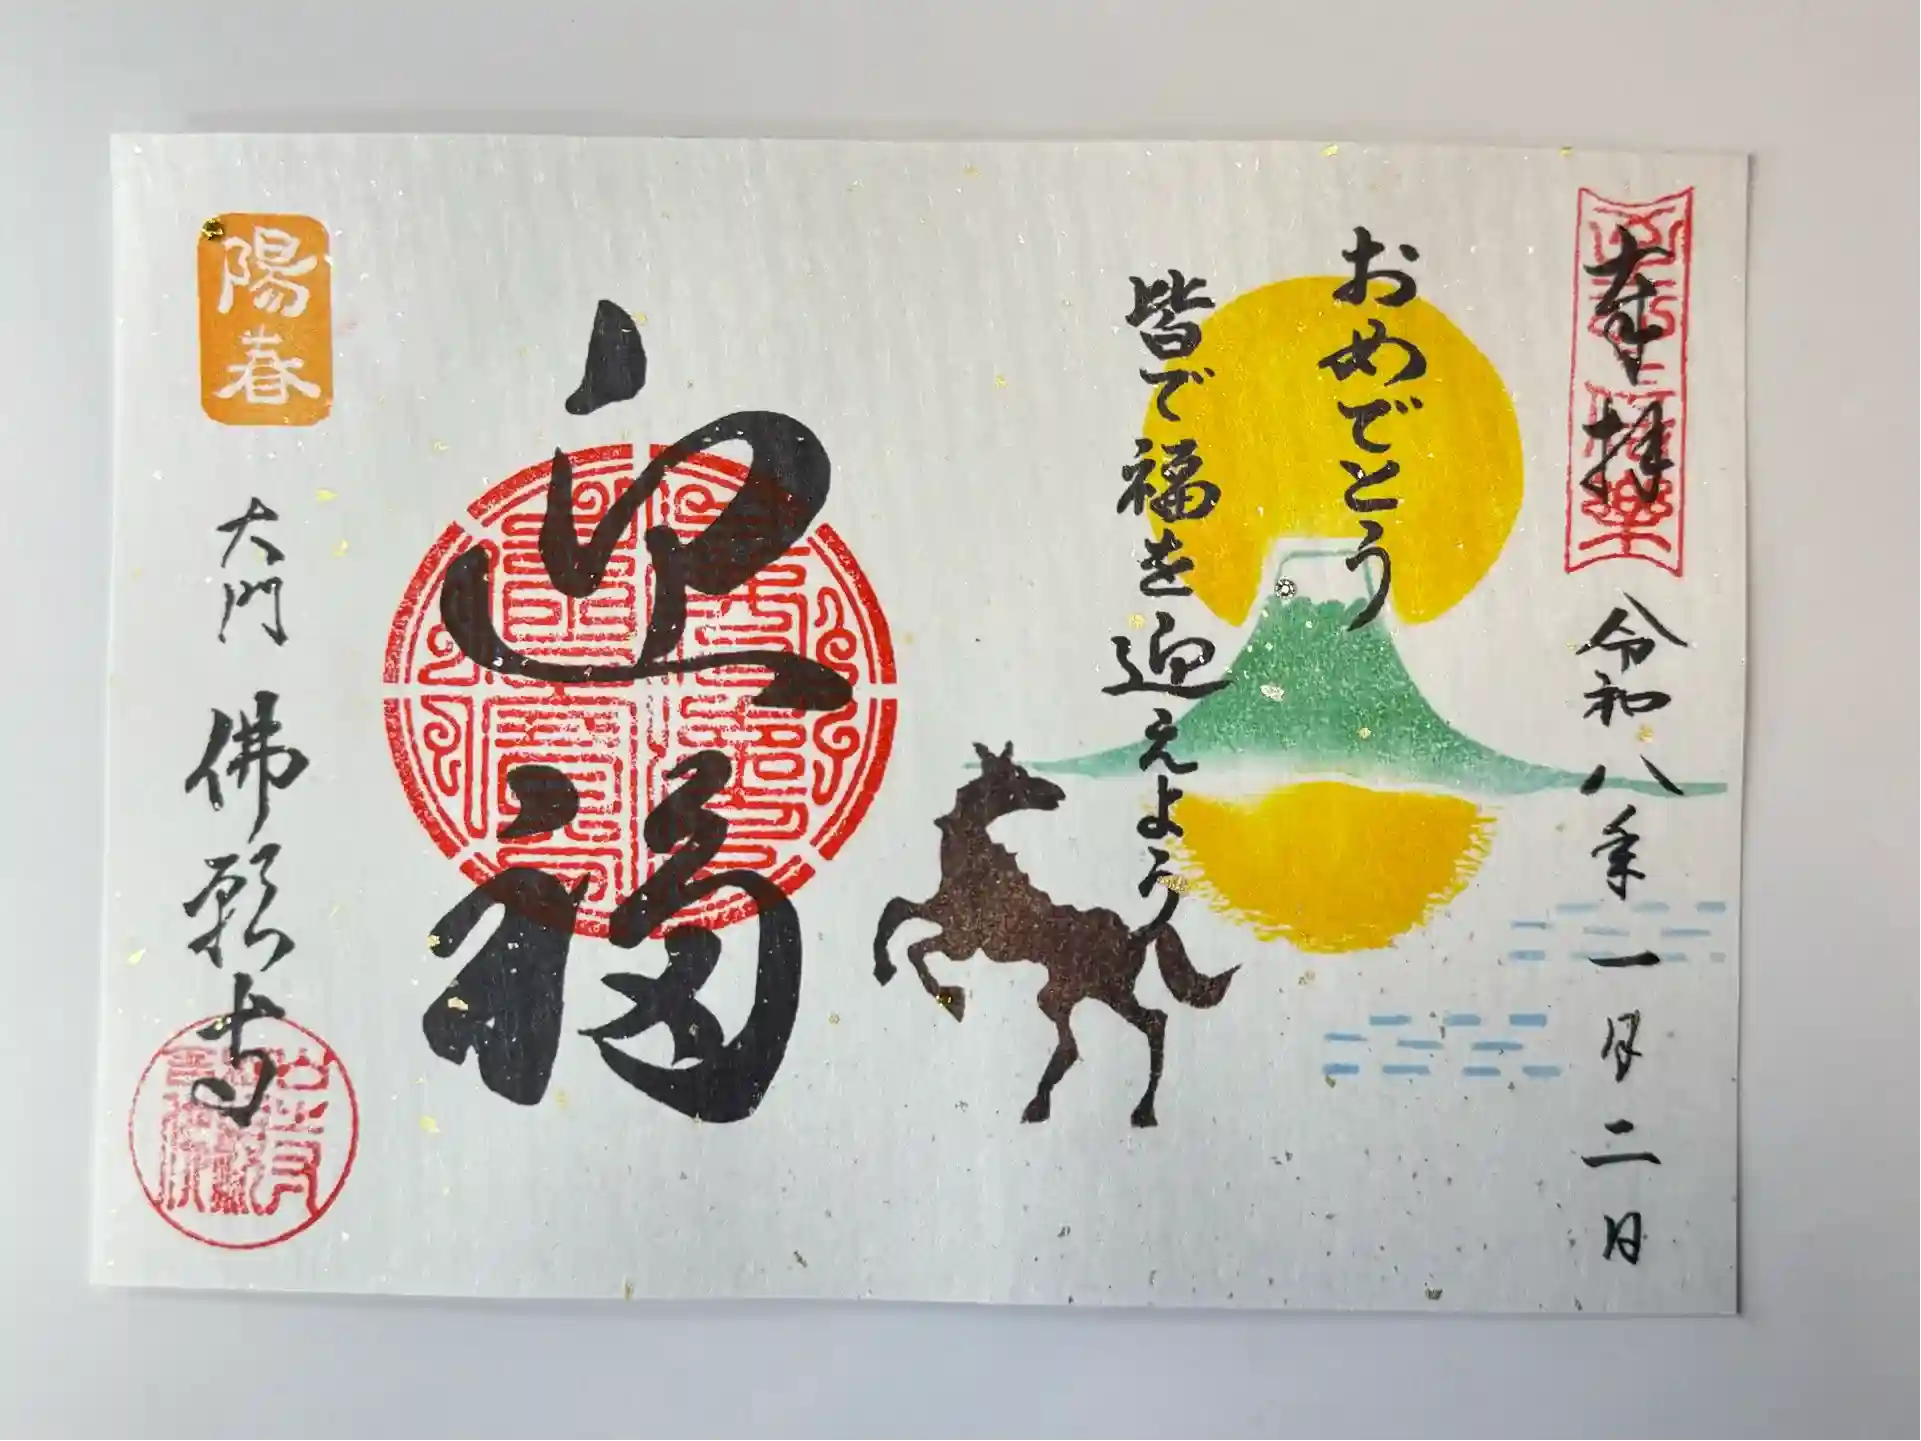 奉拝
令和八年一月二日
おめでとう
皆で福を迎えよう
迎福
陽春
大門
佛願寺